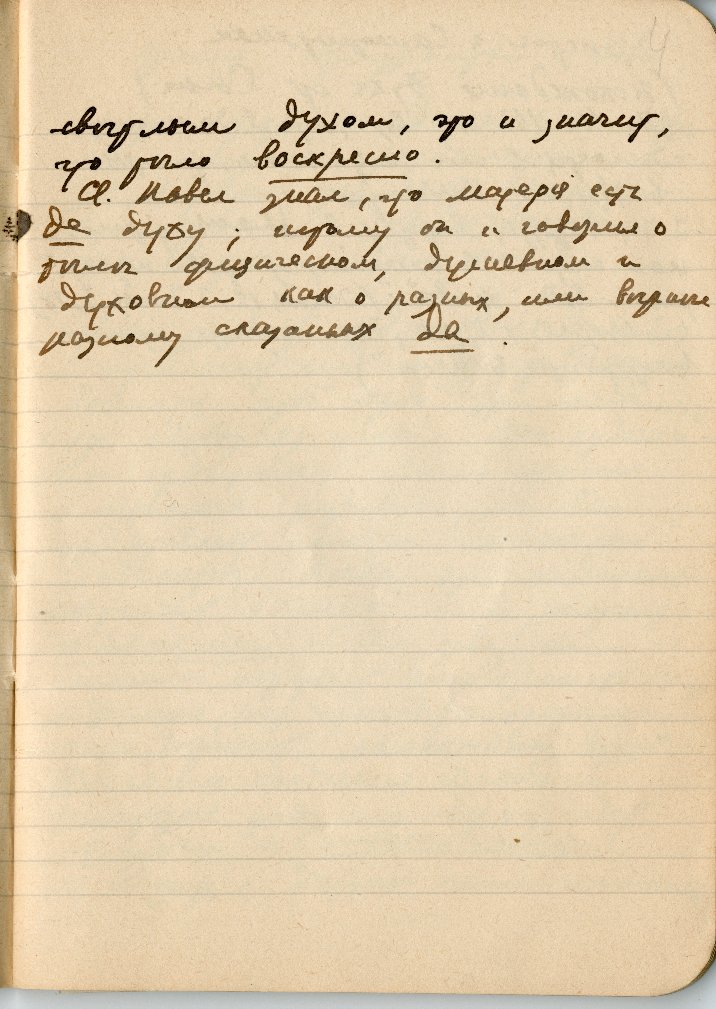 4
светлым духом, это и значит,
что тело воскресло.
А. Павел знал, что материя есть
да духу; поэтому он и говорил о
телах физическом, душевном и
духовном как о разных, или вернее
разному сказанных да.